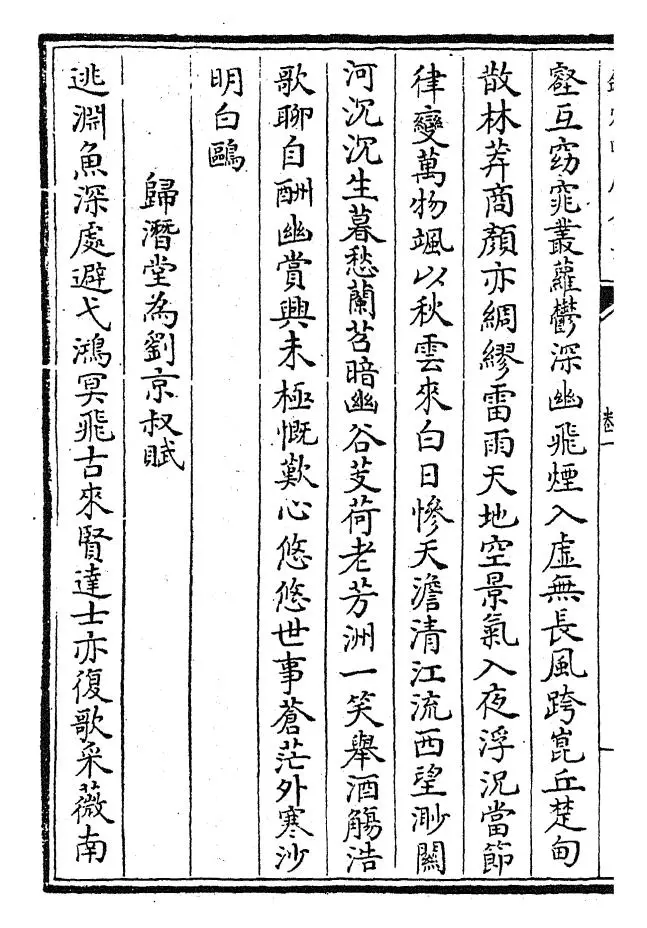 壑互窈窕叢蘿鬱深幽飛煙入虛無長風跨崑丘楚甸
散林莽商顏亦綢繆雷雨天地空景氣入夜浮況當節
律變萬物颯以秋雲來白日慘天澹清江流西望渺關
河沉沉生暮愁蘭苕暗幽谷芰荷老芳洲一笑舉酒觴浩
歌聊自酬幽賞興未極慨歎心悠悠世事蒼茫外寒沙
明白鷗
歸潛堂為劉京叔賦
逃淵魚深處避弋鴻冥飛古來賢達士亦復歌采薇南
卷一